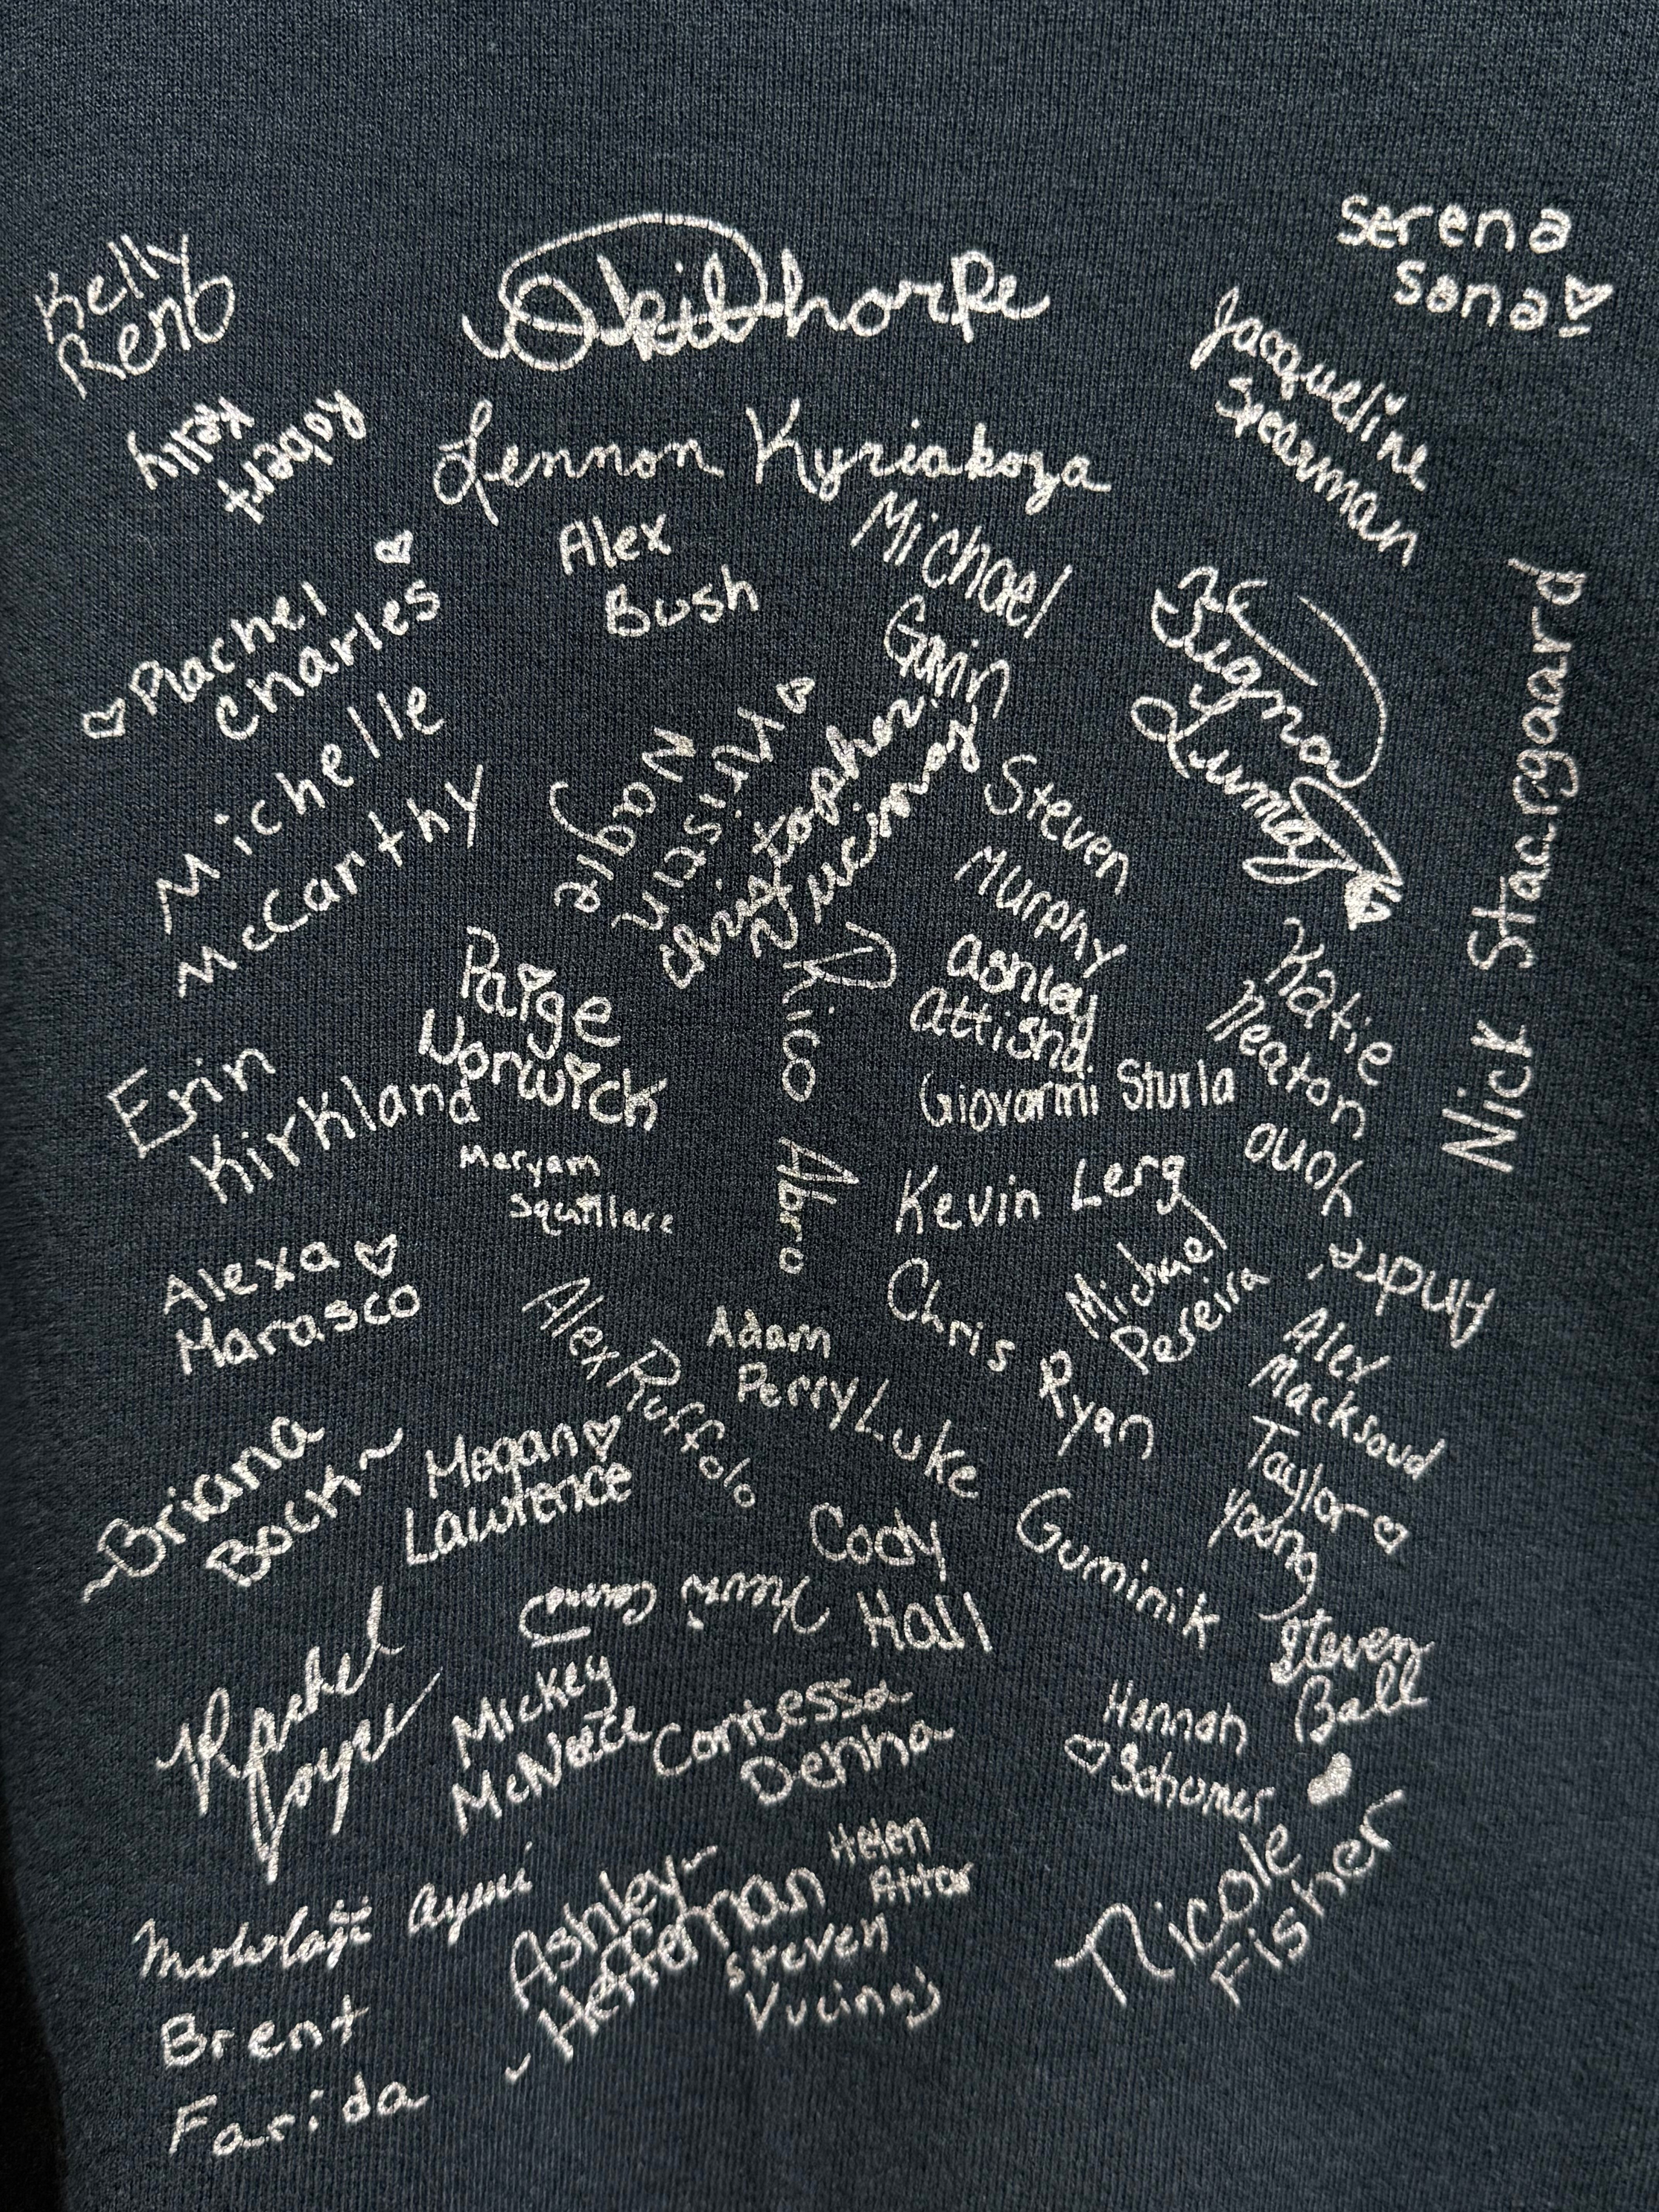 Kelly
Rent
Serena
Sana
Robert
Kelly
Jacqueline
Spearman
Lennon Kyriakoza
Alex
Bush
Michael
Gavin
Rachel
Charles
Michelle
McCarthy
Kristin
Nagle
Christopher
Steven
Murphy
Nick Staargaard
Paige
Norwick
Rico Abro
Ashley
Attisha
Katie
Neaton
Giovanni Sturla
Erin
Kirkland
Maryam
Squillare
Kevin Lerg
John
Andre
Michael
Pereira
Alexa
Marasco
Alex Ruffolo
Adam
Perry
Chris
Ryan
Alex
Macksoud
Luke
Guminik
Taylor
Young
~Briana
Bock~
Megan
Lawrence
Cody
Hall
Steven
Ball
Rachel
Joyce
Mickey
McNeice
Contessa
Denha
Hannah
Schomer
Nicole
Fisher
Ashley
Heffernan
Helen
Attar
Steven
Vucinaj
Brent
Farida